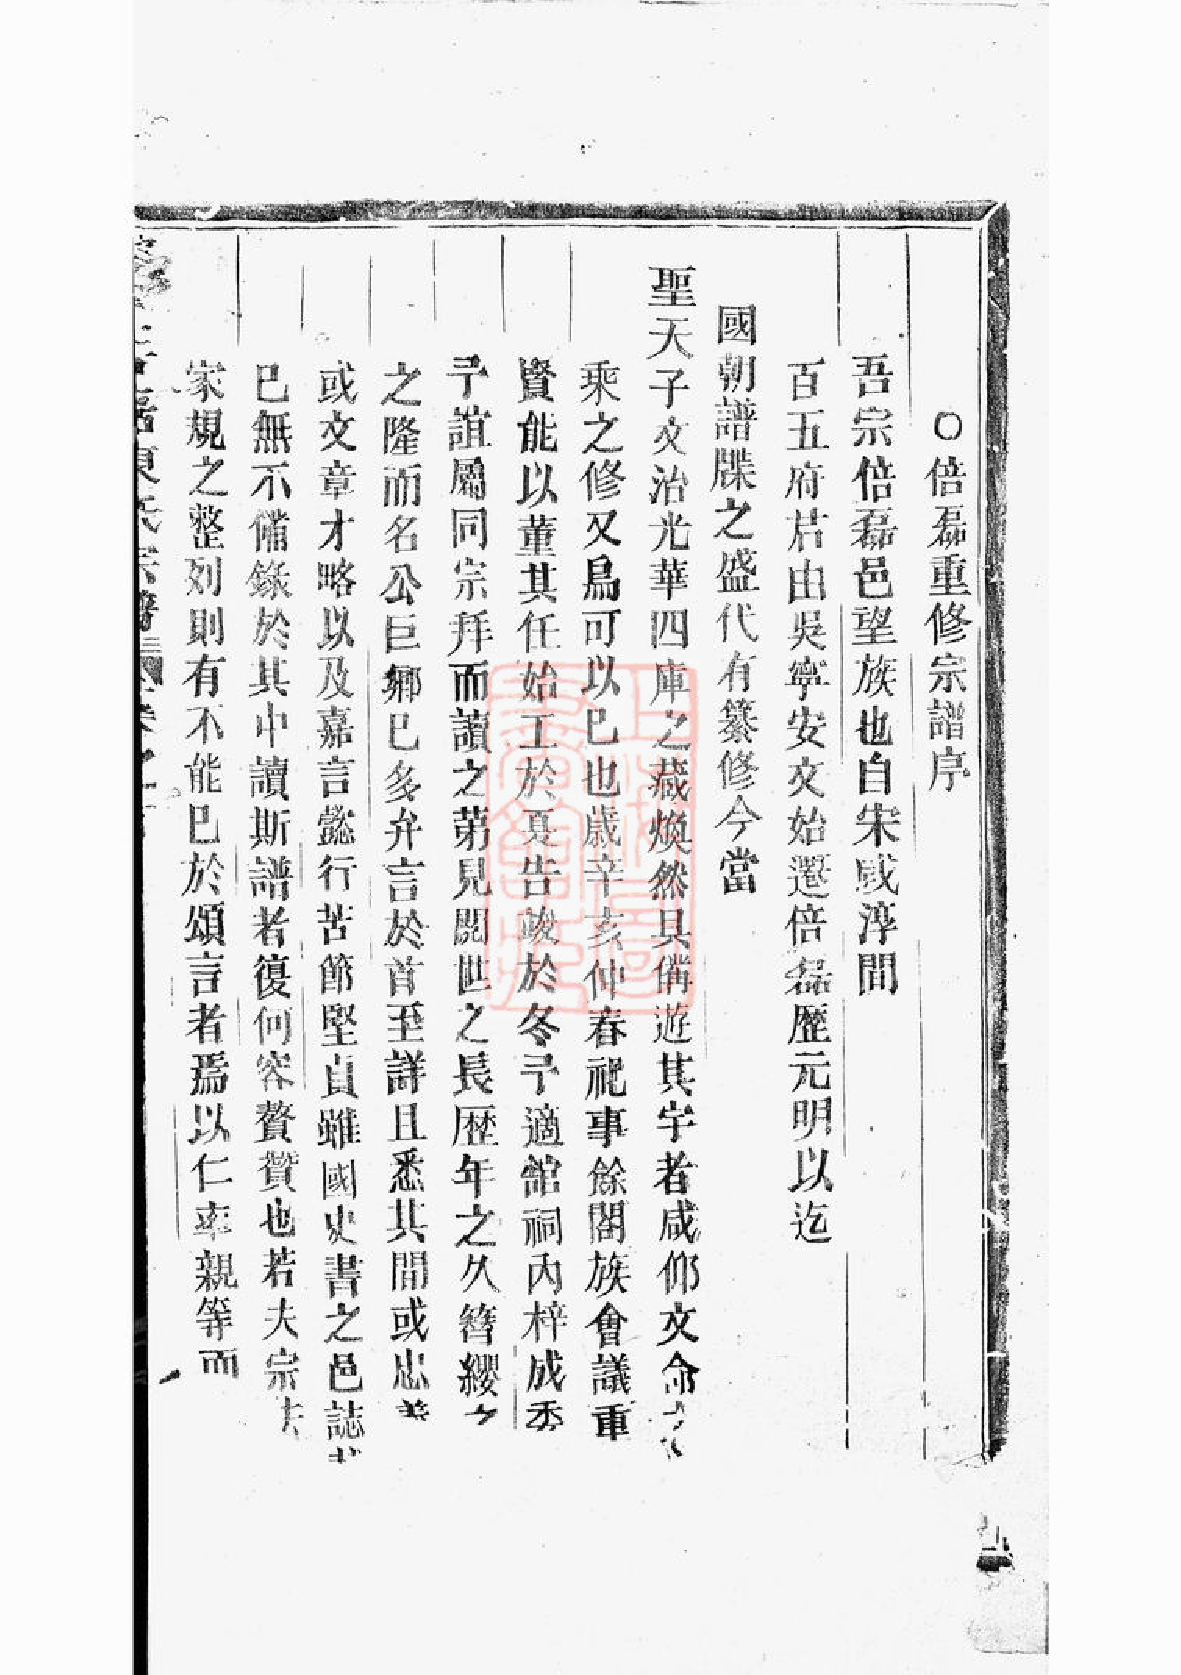 ○倍磊重修宗譜序
吾宗倍磊邑望族也自宋咸淳間
百五府君由吳寧安文始遷倍磊歷元明以迄
國朝譜牒之盛代有纂修今當
聖天子文治光華四庫之藏煥然具備遊其宇者咸仰文命
乘之修又烏可以已也歲辛亥仲春祀事餘閤族會議重
賢能以董其任始工於夏告竣於冬予適館祠內梓成委
予誼屬同宗拜而讀之第見閱世之長歷年之久簪纓之
之隆而名公巨卿已多弁言於首至詳且悉其間或忠義
或文章才略以及嘉言懿行苦節堅貞雖國史書之邑誌
已無不備錄於其中讀斯譜者復何容贅贊也若夫宗法
家規之整列則有不能已於頌言者焉以仁率親等而
東氏宗譜